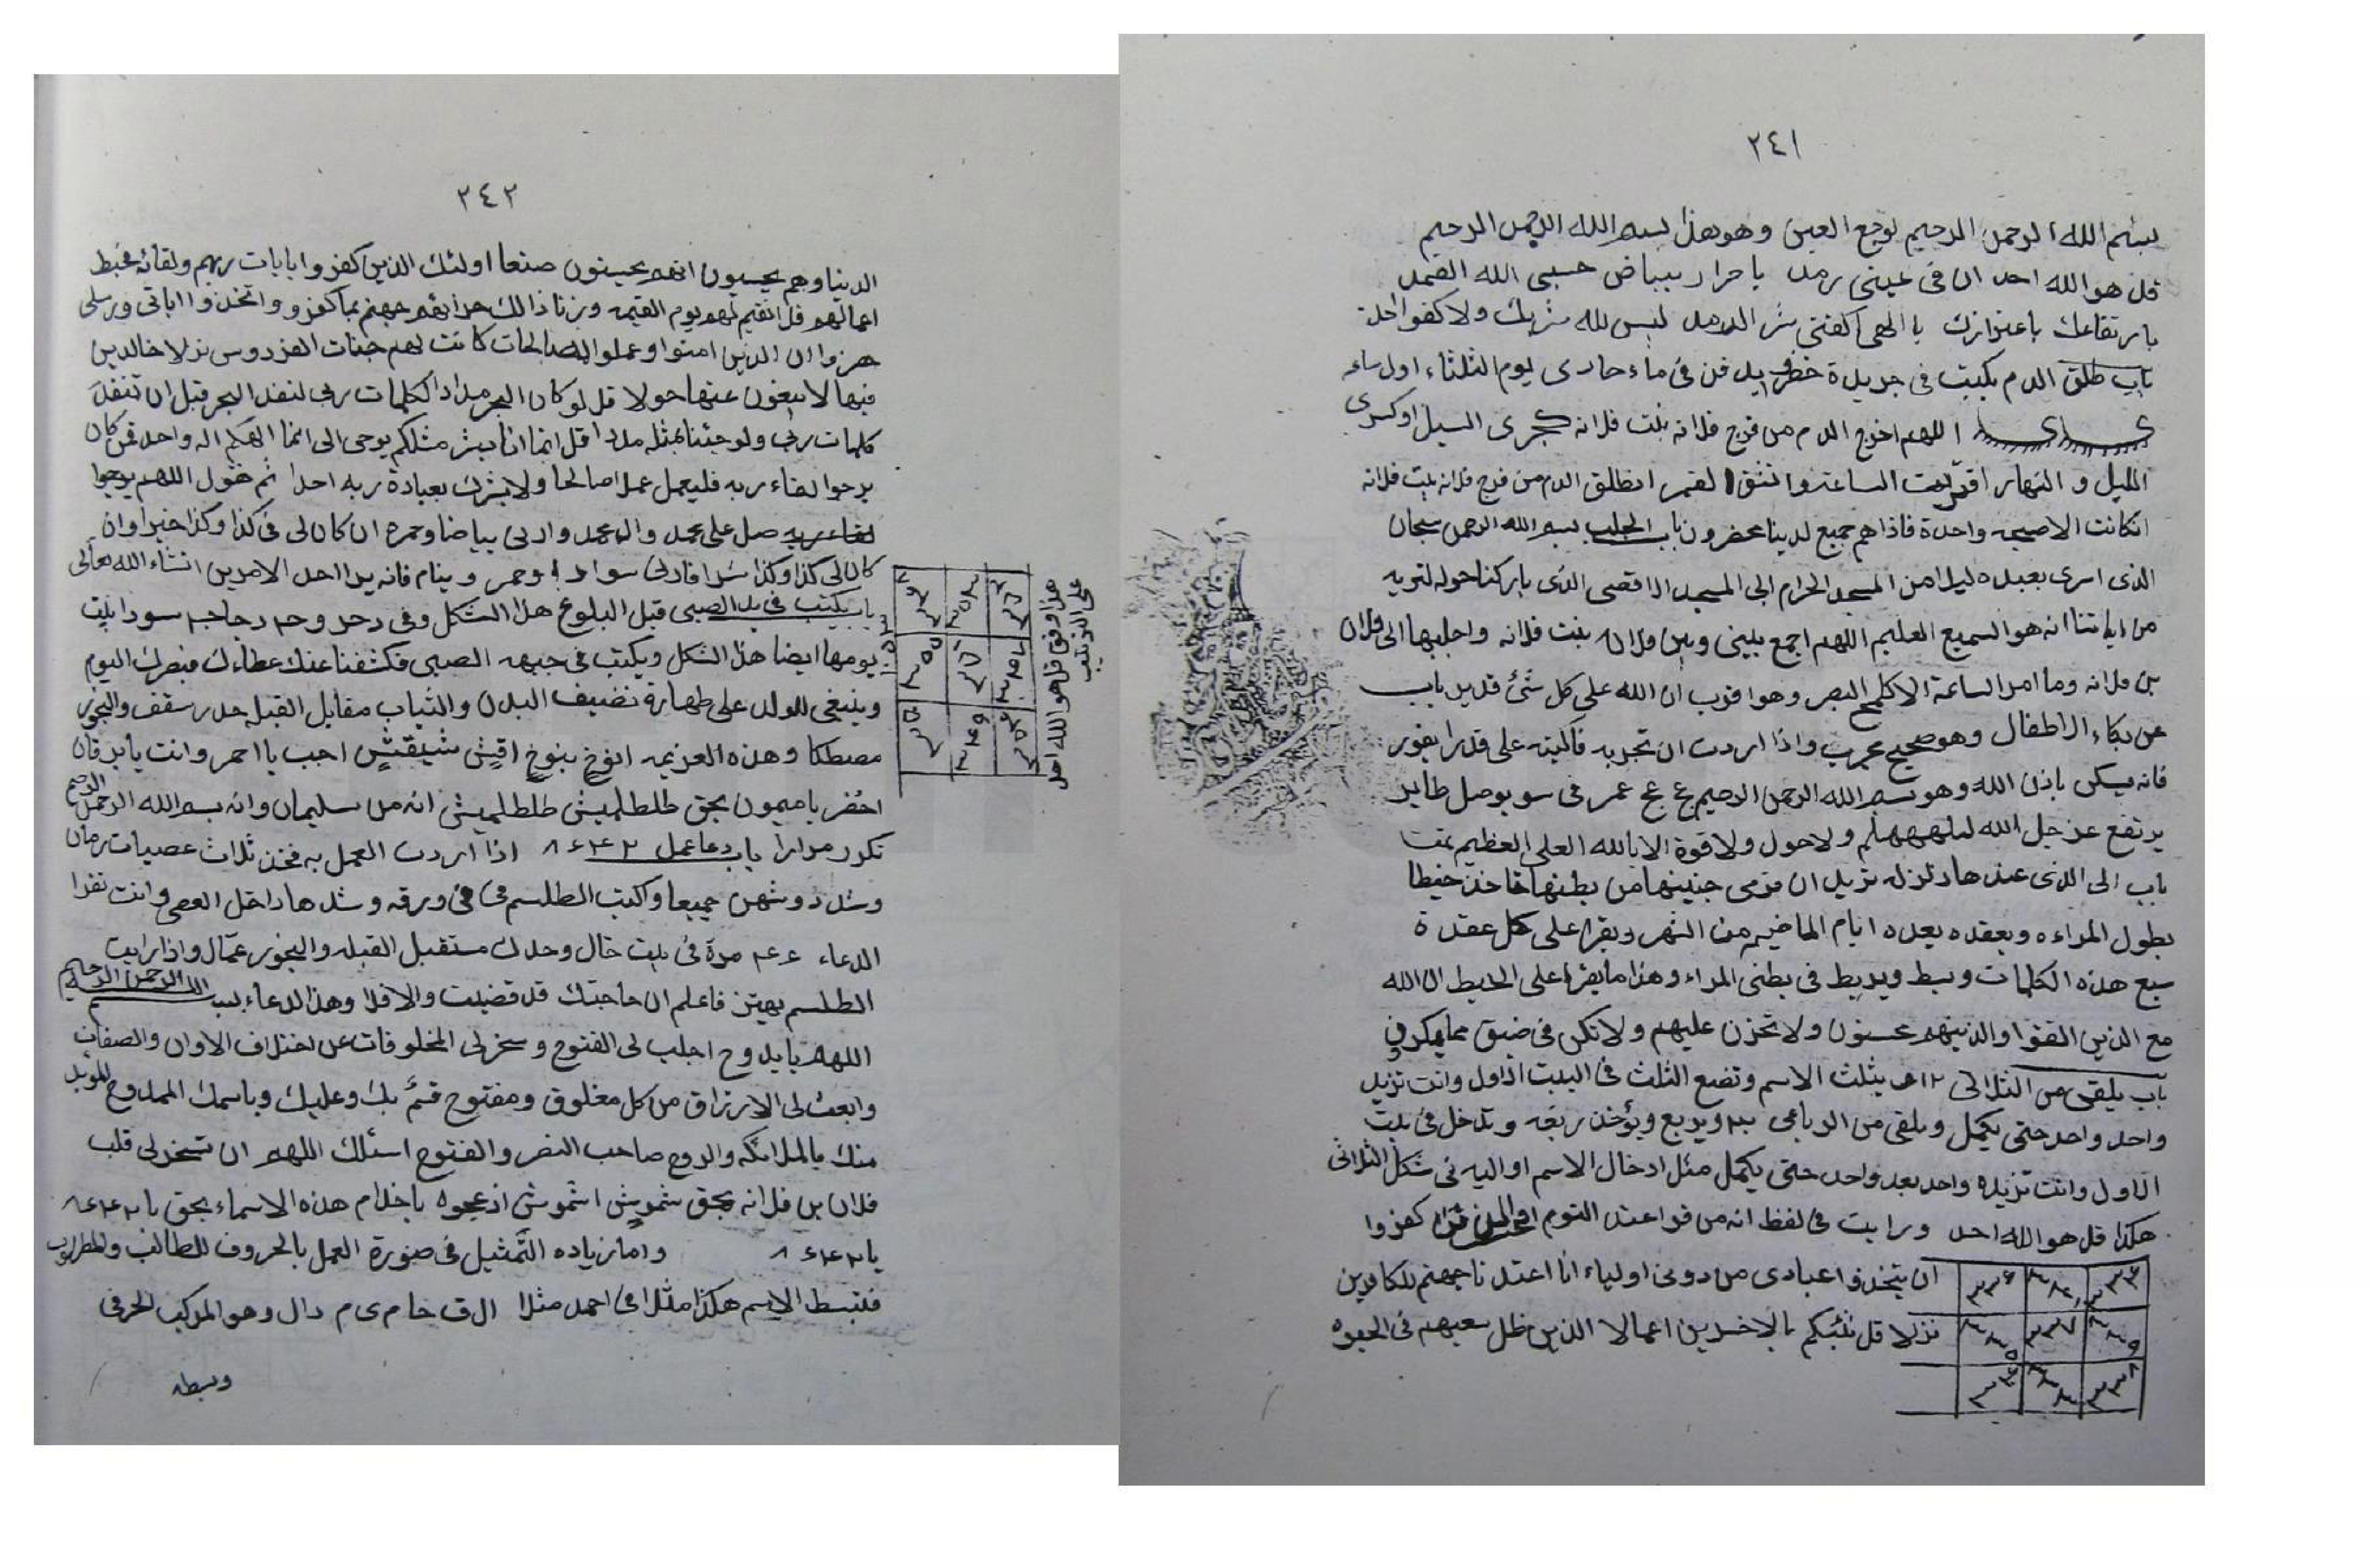 ٢٤١
بسم الله الرحمن الرحيم لوجع العين وهو هذا بسم الله الرحمن الرحيم
قل هو الله احد ان فى عينى رمد يا حرار ببياض حسبى الله الصمد
بارتفاعك باعتزازك يا الهى اكفنى شر الرمد ليس لله شريك ولا كفوا احد
باب طلق الدم يكتب فى جريدة خضرا يدفن فى ماء جارى يوم الثلثاء اول ساعه
اللهم اخرج الدم من فرج فلانه بنت فلانه كجرى السيل او كسرى
الليل و النهار اقتربت الساعة وانشق القمر انطلق الدم من فرج فلانه بنت فلانه
انكانت الا صيحه واحدة فاذا هم جميع لدينا محضرون باب الجلب بسم الله الرحمن سبحان
الذى اسرى بعبده ليلا من المسجد الحرام الى المسجد الاقصى الذى باركنا حوله لنريه
من اياتنا انه هو السميع العليم اللهم اجمع بينى وبين فلانه بنت فلانه واجلبها الى فلان
بن فلانه وما امر الساعة الا كلمح البصر وهو اقرب ان الله على كل شئ قدير باب
عن بكاء الاطفال وهو صحيح مجرب واذا اردت ان تجربه فاكتبه على قدرا يفور
فانه يسكن باذن الله وهو بسم الله الرحمن الرحيم عج عج عمر فى سو يوصل طاير
يرتفع عز جل الله ولا حول ولا قوة الا بالله العلى العظيم تمت
باب الى الذى عندها دلزله تريد ان فرمى جنينها من بطنها تاخذ خيطا
بطول المراءه وبعقده بعده ايام الماضيه من الشهر ويقرا على كل عقدة
سبع هذه الكلمات وبسط ويربط فى بطنى المراء وهذا ما يقرا على الخيط ان الله
مع الذين اتقوا والذينهم محسنون ولا تحزن عليهم ولا تكن فى ضيق مما يمكرون
باب يلقى من الثلاثى ١٢ يثلث الاسم وتضع الثلث فى البيت الاول وانت تزيد
واحد واحد حتى يكمل ويلقى من الرباعى ٣٠ ويربع ويؤخذ ربعه وتدخل فى بيت
الاول وانت تزيده واحد بعد واحد حتى يكمل مثل ادخال الاسم او اليه فى شكل الثلاثى
هكذا قل هو الله احد ورايت فى لفظ انه من قراء عند النوم كفروا
ان يتخذوا عبادى من دونى اولياء انا اعتدنا جهنم للكافرين
نزلا قل ننبئكم بالاخسرين اعمالا الذين ظل سعيهم فى الحيوه
٢٤٢
الدينا وهم يحسبون انهم يحسنون صنعا اولئك الذين كفروا بايات ربهم ولقائه فحبط
اعمالهم فلا نقيم لهم يوم القيمه وزنا ذالك جزائهم جهنم بما كفرو واتخذوا اياتى ورسلى
هزوا ان الذين امنوا وعملوا الصالحات كانت لهم جنات الفردوس نزلا خالدين
فيها لا يبغون عنها حولا قل لو كان البحر مدادا لكلمات ربى لنفد البحر قبل ان تنفد
كلمات ربى ولو جئنا بمثله مددا قل انما انا بشر مثلكم يوحى الى انما الهكم اله واحد فمن كان
يرجوا لقاء ربه فليعمل عملا صالحا ولا يشرك بعبادة ربه احدا ثم تقول اللهم يرجوا
لقاء ربه صل على محمد وال محمد وارنى بياضا وحمره ان كان لى فى كذا وكذا خيرا وان
كان لى كذا وكذا شرا فارنى سوادا وحمر وينام فانه يرا احد الامرين انشاء الله تعالى
باب يكتب فى يد الصبى قبل البلوغ هذا الشكل وفى دجاجه سودا بيت
يومها ايضا هذا الشكل ويكتب فى جبهه الصبى فكشفنا عنك غطاءك فبصرك اليوم
وينبغى للولد على طهارة نضيف البدن والثياب مقابل القبله حدر سقف والبخور
مصطكا وهذه العزيمه انوخ بنوخ اقيش شيقش اجب يا احمر وانت يا برقان
احضر يا ميمون بحق طلطلميش طلطلميش انه من سليمان وانه بسم الله الرحمن الرحيم
تكرر مرارا باب دعا عمل ٨٤٤٢ اذا اردت العمل به فخذ ثلاث عصيات رمان
وشد روشهن جميعا واكتب الطلسم فى ورقه وشدها داخل العصى وانت تقرا
الدعاء مرة فى بيت خال وحدك مستقبل القبله والبخور عمال واذا رايت
الطلسم يهتز فاعلم ان حاجتك قد قضيت والا فلا وهذا الدعاء بسم الله الرحمن الرحيم
اللهم يا بدوح اجلب لى الفتوح وسخر لى المخلوقات عن اختلاف الاوان والصفات
وابعث لى الارزاق من كل مغلوق ومفتوح قسم بك وعليك وباسمك الممدوح المؤيد
منك بالملائكه والروح صاحب النصر والفتوح اسئلك اللهم ان تسخر لى قلب
فلان بن فلانه بحق شموش اشموش ازعجوه يا خدام هذه الاسماء بحق يا
يا واما زياده التمثيل فى صورة العمل بالحروف للطالب والمطلوب
فتبسط الاسم هكذا مثلا فى احمد مثلا ال ف حا م ى م دال وهو المركب الحرفى
وبسطه
هذا وفق قل هو الله احد
على الترتيب